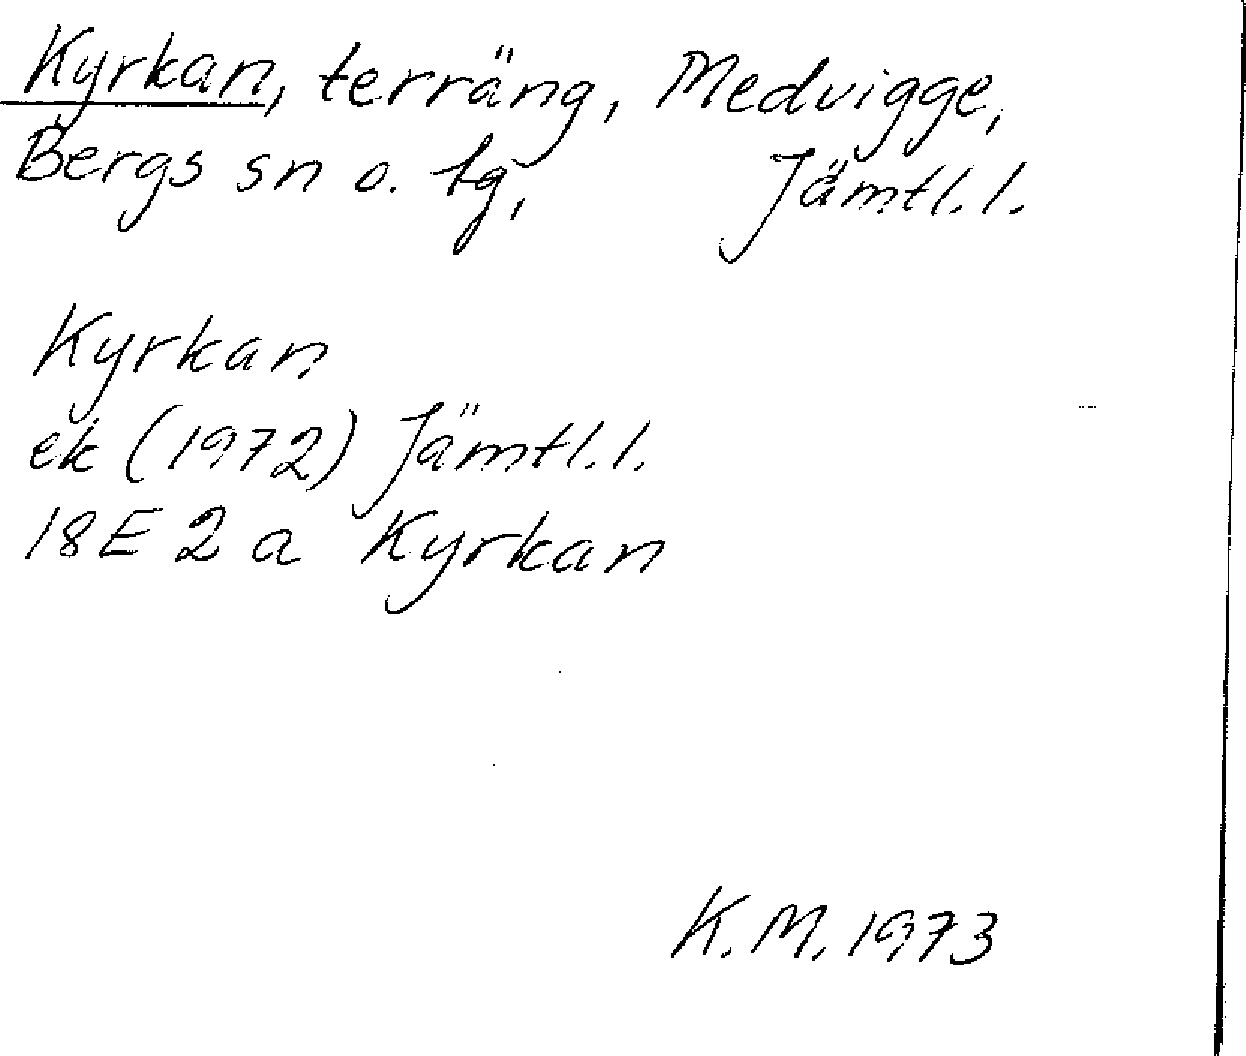 Kyrkan, terräng, Medvigge,
Bergs sn o. tg, Jämtl. l.
Kyrkan
ek (1972) Jämtl. l.
18E 2 a Kyrkan
K. M. 1973